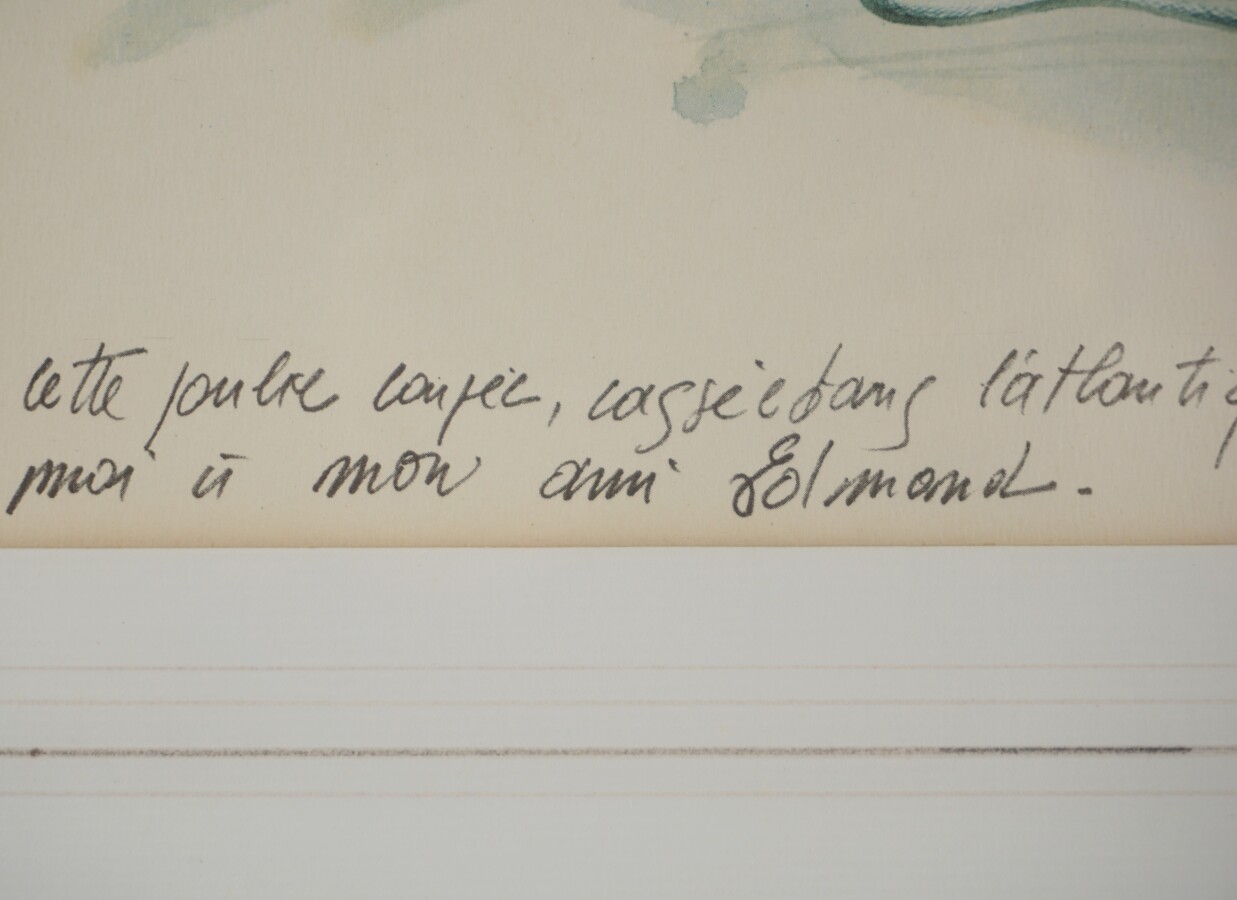 cette poulie coupée, cassée dans l'atlantiq
moi à mon ami Edmond.